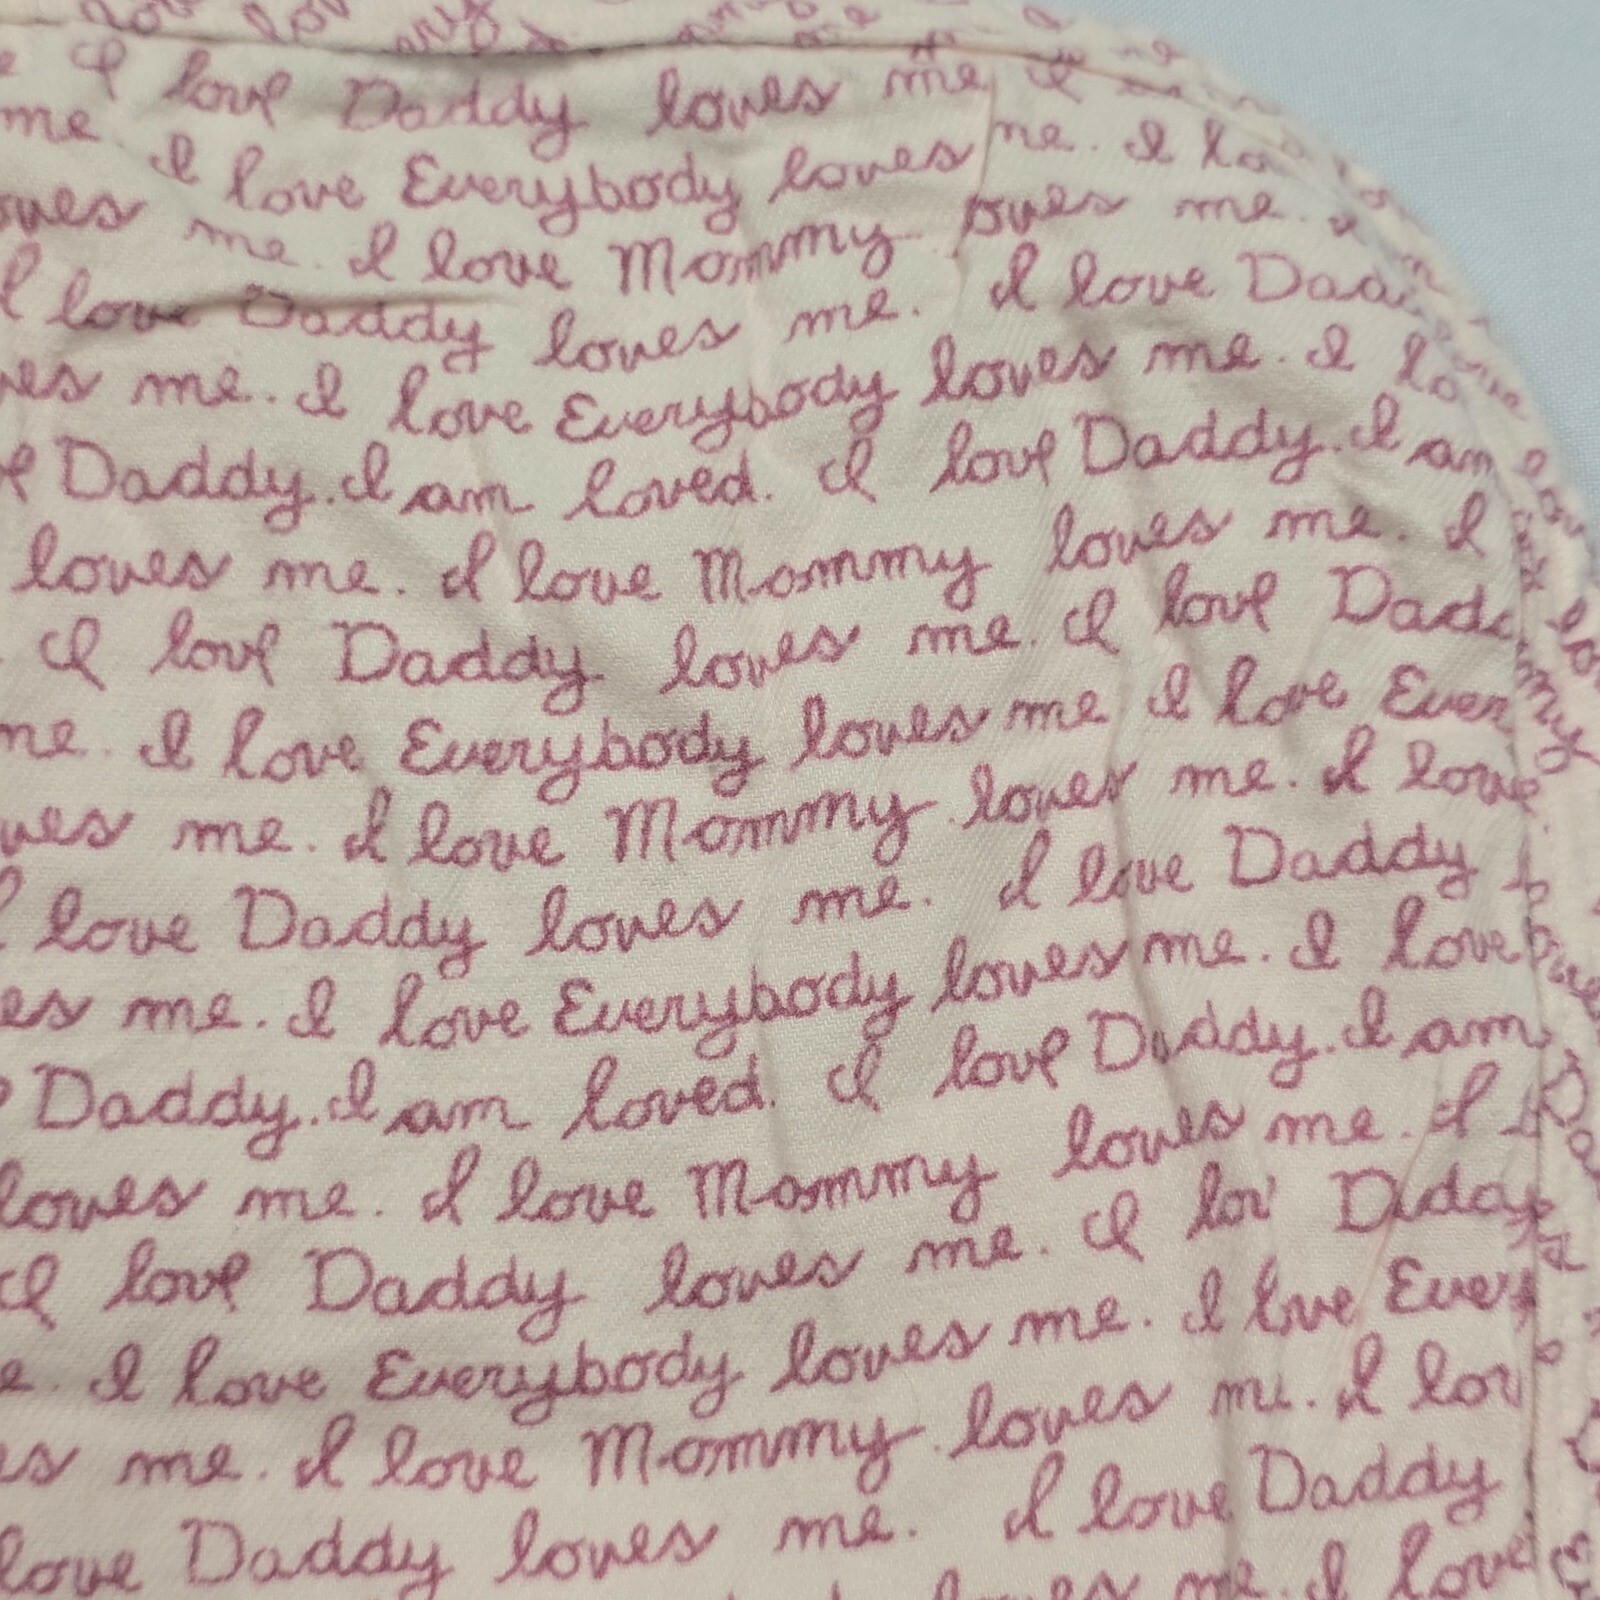 I love Daddy loves me I
me. I love Everybody loves me. I
me. I love Mommy oves me.
I love Daddy loves me. I love
me. I love Everybody loves me. I lo
Daddy. I am loved. I love Daddy. I am
loves me. I love Mommy loves me. I
I love Daddy loves me. I love Dadd
me. I love Everybody loves me I love Ever
ves me. I love Mommy loves me. I love
I love Daddy loves me. I love Daddy
es me. I love Everybody loves me. I love
Daddy. I am loved. I love Daddy. I am
loves me. I love Mommy loves me. I
I love Daddy loves me. I lov Daddy
e. I love Everybody loves me. I love Every
es me. I love Mommy loves me. I lov
love Daddy loves me. I love Daddy
loves me. I love